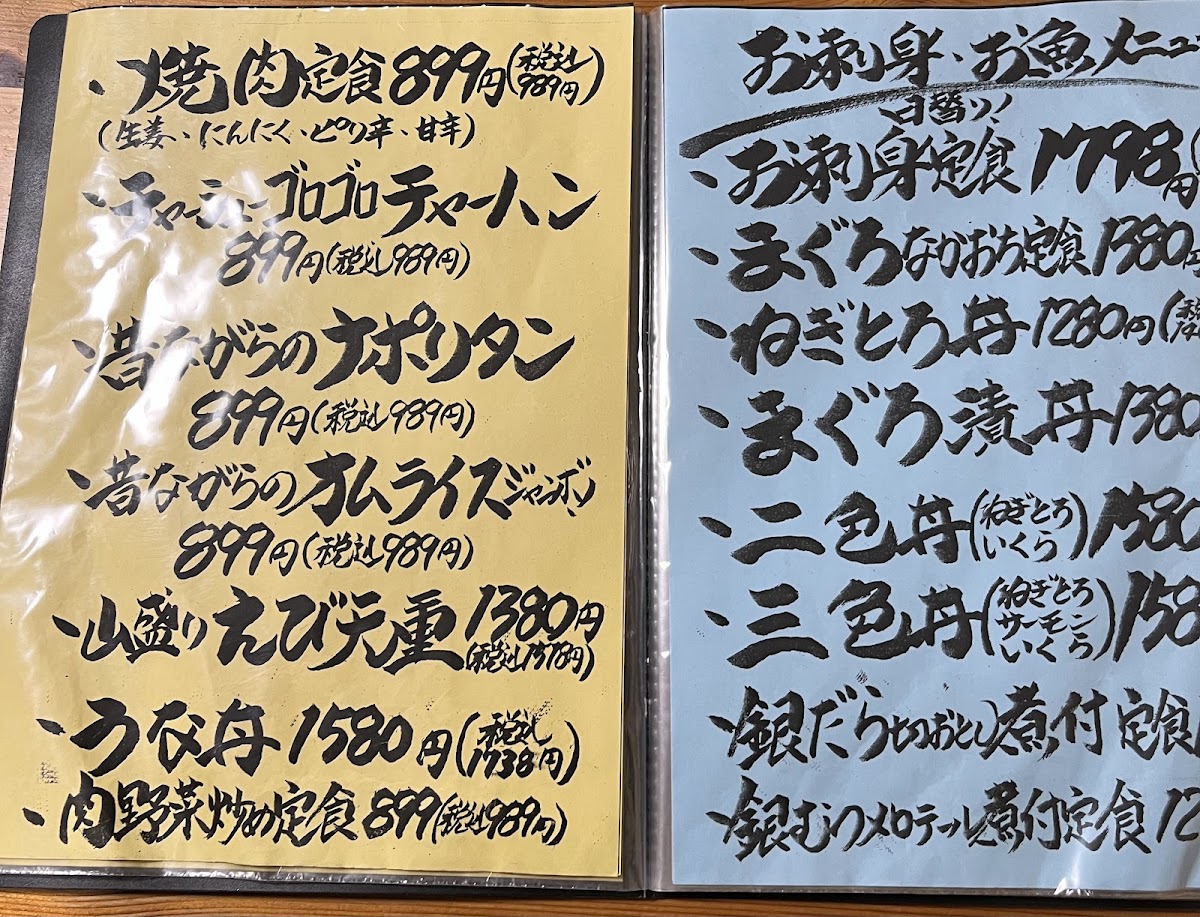 ・焼肉定食899円(税込989円)
(生姜・にんにく・ピリ辛・甘辛)
・チャーシューゴロゴロチャーハン
899円(税込989円)
・昔ながらのナポリタン
899円(税込989円)
・昔ながらのオムライスジャンボ
899円(税込989円)
・山盛りえび天重1380円
(税込1518円)
・うな丼1580円(税込1738円)
・肉野菜炒め定食899(税込989円)
お刺身・お魚メニュ
日替り!
・お刺身定食1798円(
・まぐろながおち定食1380円
・ねぎとろ丼1280円(税
・まぐろ漬丼1380
・二色丼(ねぎとろいくら)1580
・三色丼(ねぎとろサーモンいくら)158
・銀だら切りおとし煮付定食
・銀むつメロテール煮付定食12